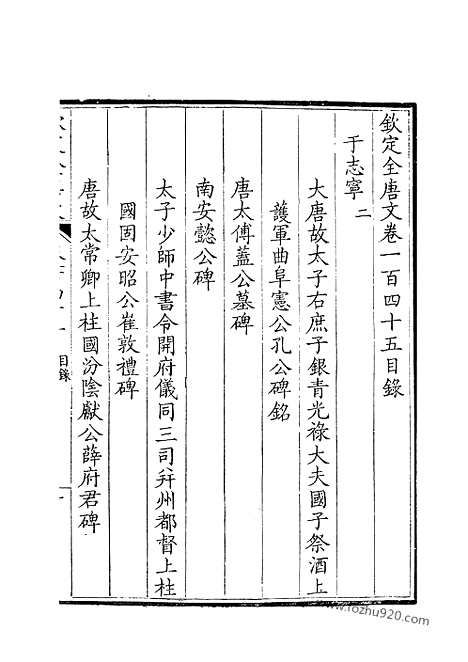 欽定全唐文卷一百四十五目錄
于志寧 二
大唐故太子右庶子銀青光祿大夫國子祭酒上
護軍曲阜憲公孔公碑銘
唐太傅蓋公墓碑
南安懿公碑
太子少師中書令開府儀同三司并州都督上柱
國固安昭公崔敦禮碑
唐故太常卿上柱國汾陰獻公薛府君碑
目錄
www.fozhu920.com